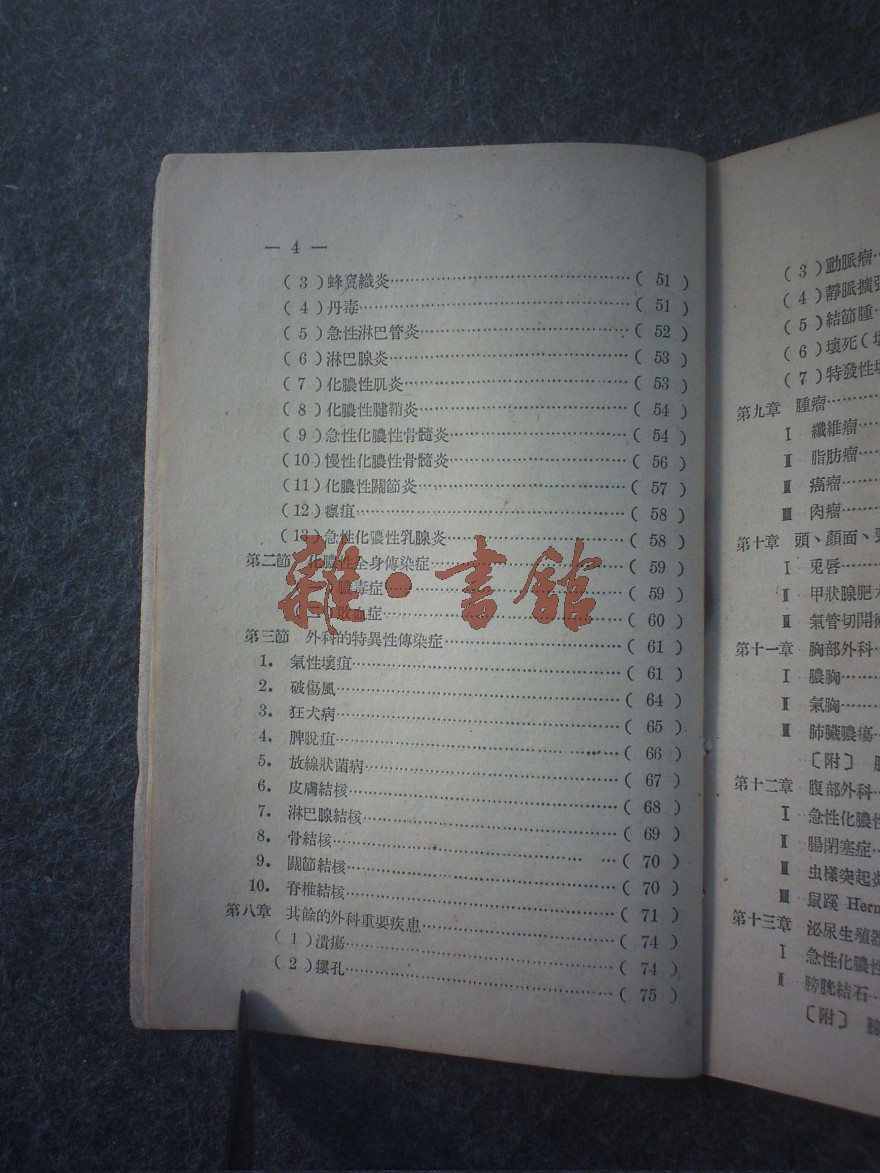 — 4 —
(3)蜂窩織炎……(51)
(4)丹毒……(51)
(5)急性淋巴管炎……(52)
(6)淋巴腺炎……(53)
(7)化膿性肌炎……(53)
(8)化膿性腱鞘炎……(54)
(9)急性化膿性骨髓炎……(54)
(10)慢性化膿性骨髓炎……(56)
(11)化膿性關節炎……(57)
(12)瘭疽……(58)
(13)急性化膿性乳腺炎……(58)
第二節 化膿性全身傳染症……(59)
膿毒症……(59)
敗血症……(60)
第三節 外科的特異性傳染症……(61)
1. 氣性壞疽……(61)
2. 破傷風……(64)
3. 狂犬病……(65)
4. 脾脫疽……(66)
5. 放線狀菌病……(67)
6. 皮膚結核……(68)
7. 淋巴腺結核……(69)
8. 骨結核……(70)
9. 關節結核……(70)
10. 脊椎結核……(71)
第八章 其餘的外科重要疾患……(74)
(1)潰瘍……(74)
(2)瘻孔……(75)
雜·書館
(3)動脈瘤…
(4)靜脈擴張
(5)結節腫…
(6)壞死(
(7)特發性
第九章 腫瘤……
I 纖維瘤……
II 脂肪瘤……
III 癌瘤……
III 肉瘤……
第十章 頭、顏面、
I 兎唇……
II 甲狀腺肥
III 氣管切開術
第十一章 胸部外科…
I 膿胸……
I 氣胸……
III 肺臟膿瘍…
〔附〕
第十二章 腹部外科…
I 急性化膿性
II 腸閉塞症…
III 虫樣突起炎
III 鼠蹊 Hern
第十三章 泌尿生殖器
I 急性化膿性
II 膀胱結石…
〔附〕